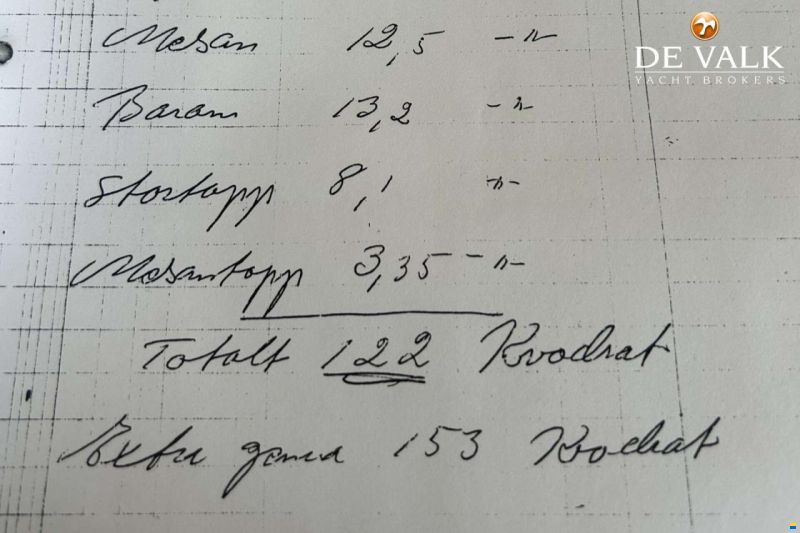 Mesan 12,5 -"-
DE VALK
YACHT BROKERS
Baram 13,2 -"-
Stortopp 8,1 -"-
Mesantopp 3,35 -"-
Totalt 122 Kvadrat
Extra 153 Kvadrat